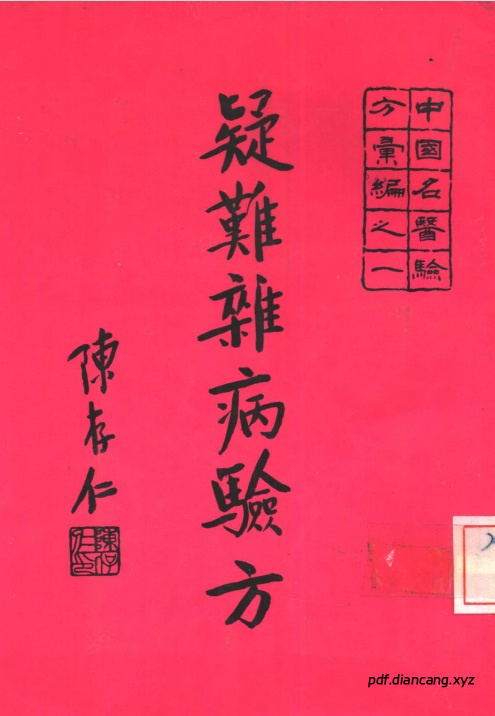 中國名醫驗
方彙編之一
疑難雜病驗方
陳存仁
陳存仁印
pdf.diancang.xyz